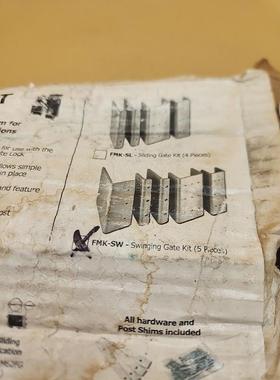 T
m for
ions
FMK-SL - Sliding Gate Kit (4 Pieces)
for use with the
te Lock
llows simple
in place
and feature
ost
FMK-SW - Swinging Gate Kit (5 Pieces)
All hardware and
Post Shims included
liding
ication